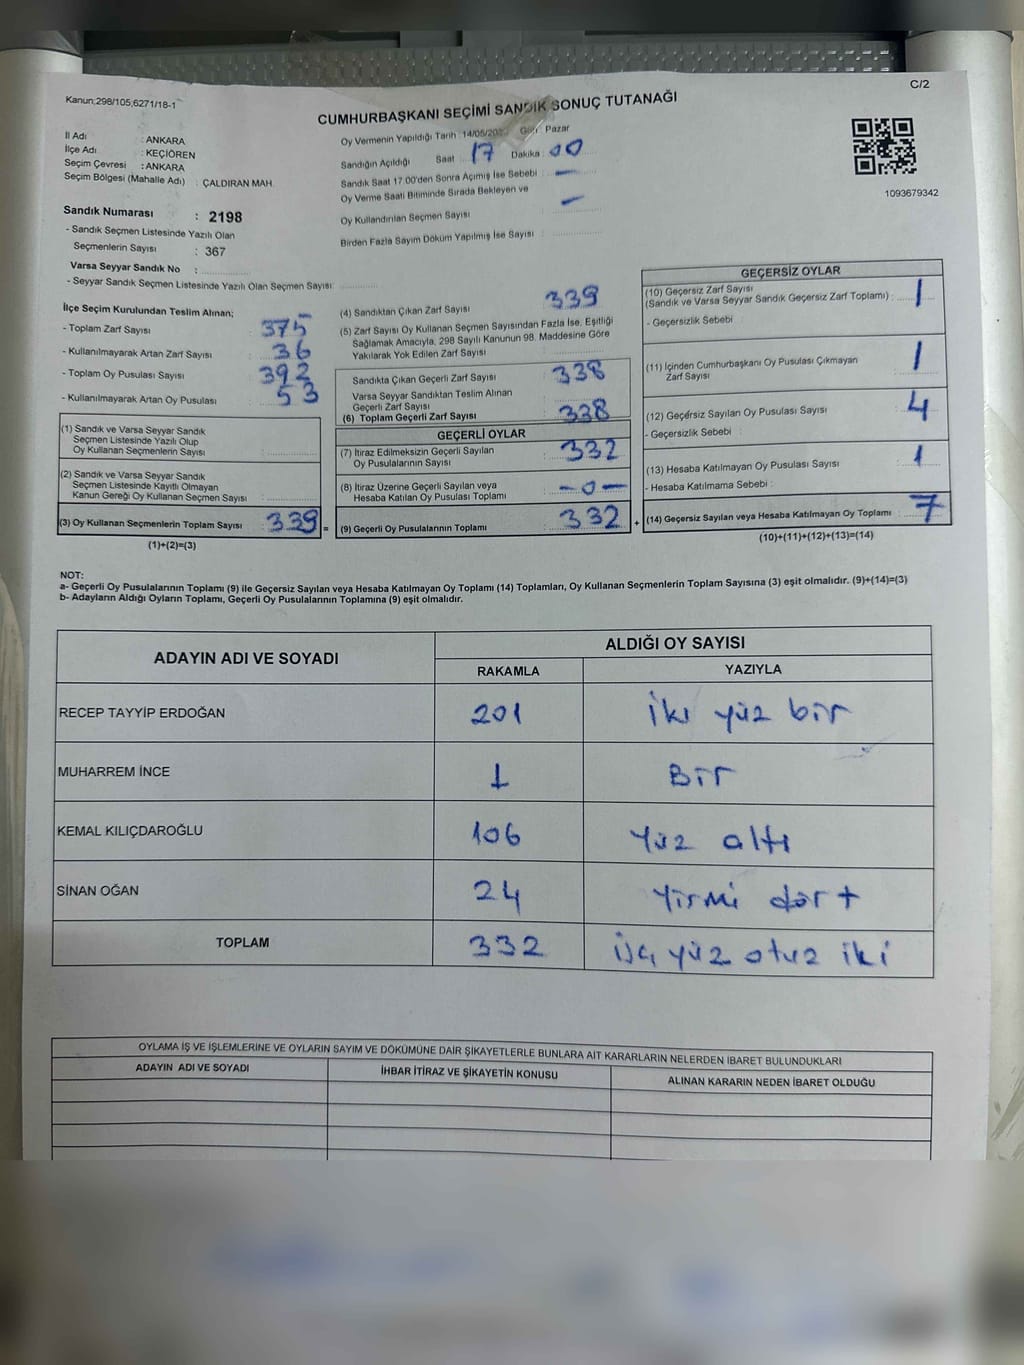 C/2
Kanun;298/105,6271/18-1
CUMHURBAŞKANI SEÇİMİ SANDIK SONUÇ TUTANAĞI
İl Adı : ANKARA
İlçe Adı : KEÇİÖREN
Seçim Çevresi : ANKARA
Seçim Bölgesi (Mahalle Adı) : ÇALDIRAN MAH.
Sandık Numarası : 2198
- Sandık Seçmen Listesinde Yazılı Olan
Seçmenlerin Sayısı : 367
Varsa Seyyar Sandık No :
- Seyyar Sandık Seçmen Listesinde Yazılı Olan Seçmen Sayısı:
Oy Vermenin Yapıldığı Tarih : 14/05/ Gün : Pazar
Sandığın Açıldığı Saat : 17 Dakika : 00
Sandık Saat 17:00'den Sonra Açımış İse Sebebi : —
Oy Verme Saati Bitiminde Sırada Bekleyen ve
Oy Kullandırılan Seçmen Sayısı —
Birden Fazla Sayım Döküm Yapılmış İse Sayısı :
1093679342
İlçe Seçim Kurulundan Teslim Alınan;
- Toplam Zarf Sayısı : 375
- Kullanılmayarak Artan Zarf Sayısı : 36
- Toplam Oy Pusulası Sayısı : 392
- Kullanılmayarak Artan Oy Pusulası : 53
(1) Sandık ve Varsa Seyyar Sandık
Seçmen Listesinde Yazılı Olup
Oy Kullanan Seçmenlerin Sayısı :
(2) Sandık ve Varsa Seyyar Sandık
Seçmen Listesinde Kayıtlı Olmayan
Kanun Gereği Oy Kullanan Seçmen Sayısı :
(3) Oy Kullanan Seçmenlerin Toplam Sayısı : 339 =
(1)+(2)=(3)
(4) Sandıktan Çıkan Zarf Sayısı : 339
(5) Zarf Sayısı Oy Kullanan Seçmen Sayısından Fazla İse, Eşitliği
Sağlamak Amacıyla, 298 Sayılı Kanunun 98. Maddesine Göre
Yakılarak Yok Edilen Zarf Sayısı :
Sandıkta Çıkan Geçerli Zarf Sayısı : 338
Varsa Seyyar Sandıktan Teslim Alınan
Geçerli Zarf Sayısı :
(6) Toplam Geçerli Zarf Sayısı : 338
GEÇERLİ OYLAR
(7) İtiraz Edilmeksizin Geçerli Sayılan
Oy Pusulalarının Sayısı : 332
(8) İtiraz Üzerine Geçerli Sayılan veya
Hesaba Katılan Oy Pusulası Toplamı : -0-
(9) Geçerli Oy Pusulalarının Toplamı : 332 +
GEÇERSİZ OYLAR
(10) Geçersiz Zarf Sayısı
(Sandık ve Varsa Seyyar Sandık Geçersiz Zarf Toplamı) : 1
- Geçersizlik Sebebi :
(11) İçinden Cumhurbaşkanı Oy Pusulası Çıkmayan
Zarf Sayısı : 1
(12) Geçersiz Sayılan Oy Pusulası Sayısı : 4
- Geçersizlik Sebebi :
(13) Hesaba Katılmayan Oy Pusulası Sayısı : 1
- Hesaba Katılmama Sebebi :
(14) Geçersiz Sayılan veya Hesaba Katılmayan Oy Toplamı : 7
(10)+(11)+(12)+(13)=(14)
NOT:
a- Geçerli Oy Pusulalarının Toplamı (9) ile Geçersiz Sayılan veya Hesaba Katılmayan Oy Toplamı (14) Toplamları, Oy Kullanan Seçmenlerin Toplam Sayısına (3) eşit olmalıdır. (9)+(14)=(3)
b- Adayların Aldığı Oyların Toplamı, Geçerli Oy Pusulalarının Toplamına (9) eşit olmalıdır.
ADAYIN ADI VE SOYADI
ALDIĞI OY SAYISI
RAKAMLA YAZIYLA
RECEP TAYYİP ERDOĞAN 201 iki yüz bir
MUHARREM İNCE 1 Bir
KEMAL KILIÇDAROĞLU 106 Yüz altı
SİNAN OĞAN 24 Yirmi dört
TOPLAM 332 üç yüz otuz iki
OYLAMA İŞ VE İŞLEMLERİNE VE OYLARIN SAYIM VE DÖKÜMÜNE DAİR ŞİKAYETLERLE BUNLARA AİT KARARLARIN NELERDEN İBARET BULUNDUKLARI
ADAYIN ADI VE SOYADI İHBAR İTİRAZ VE ŞİKAYETİN KONUSU ALINAN KARARIN NEDEN İBARET OLDUĞU